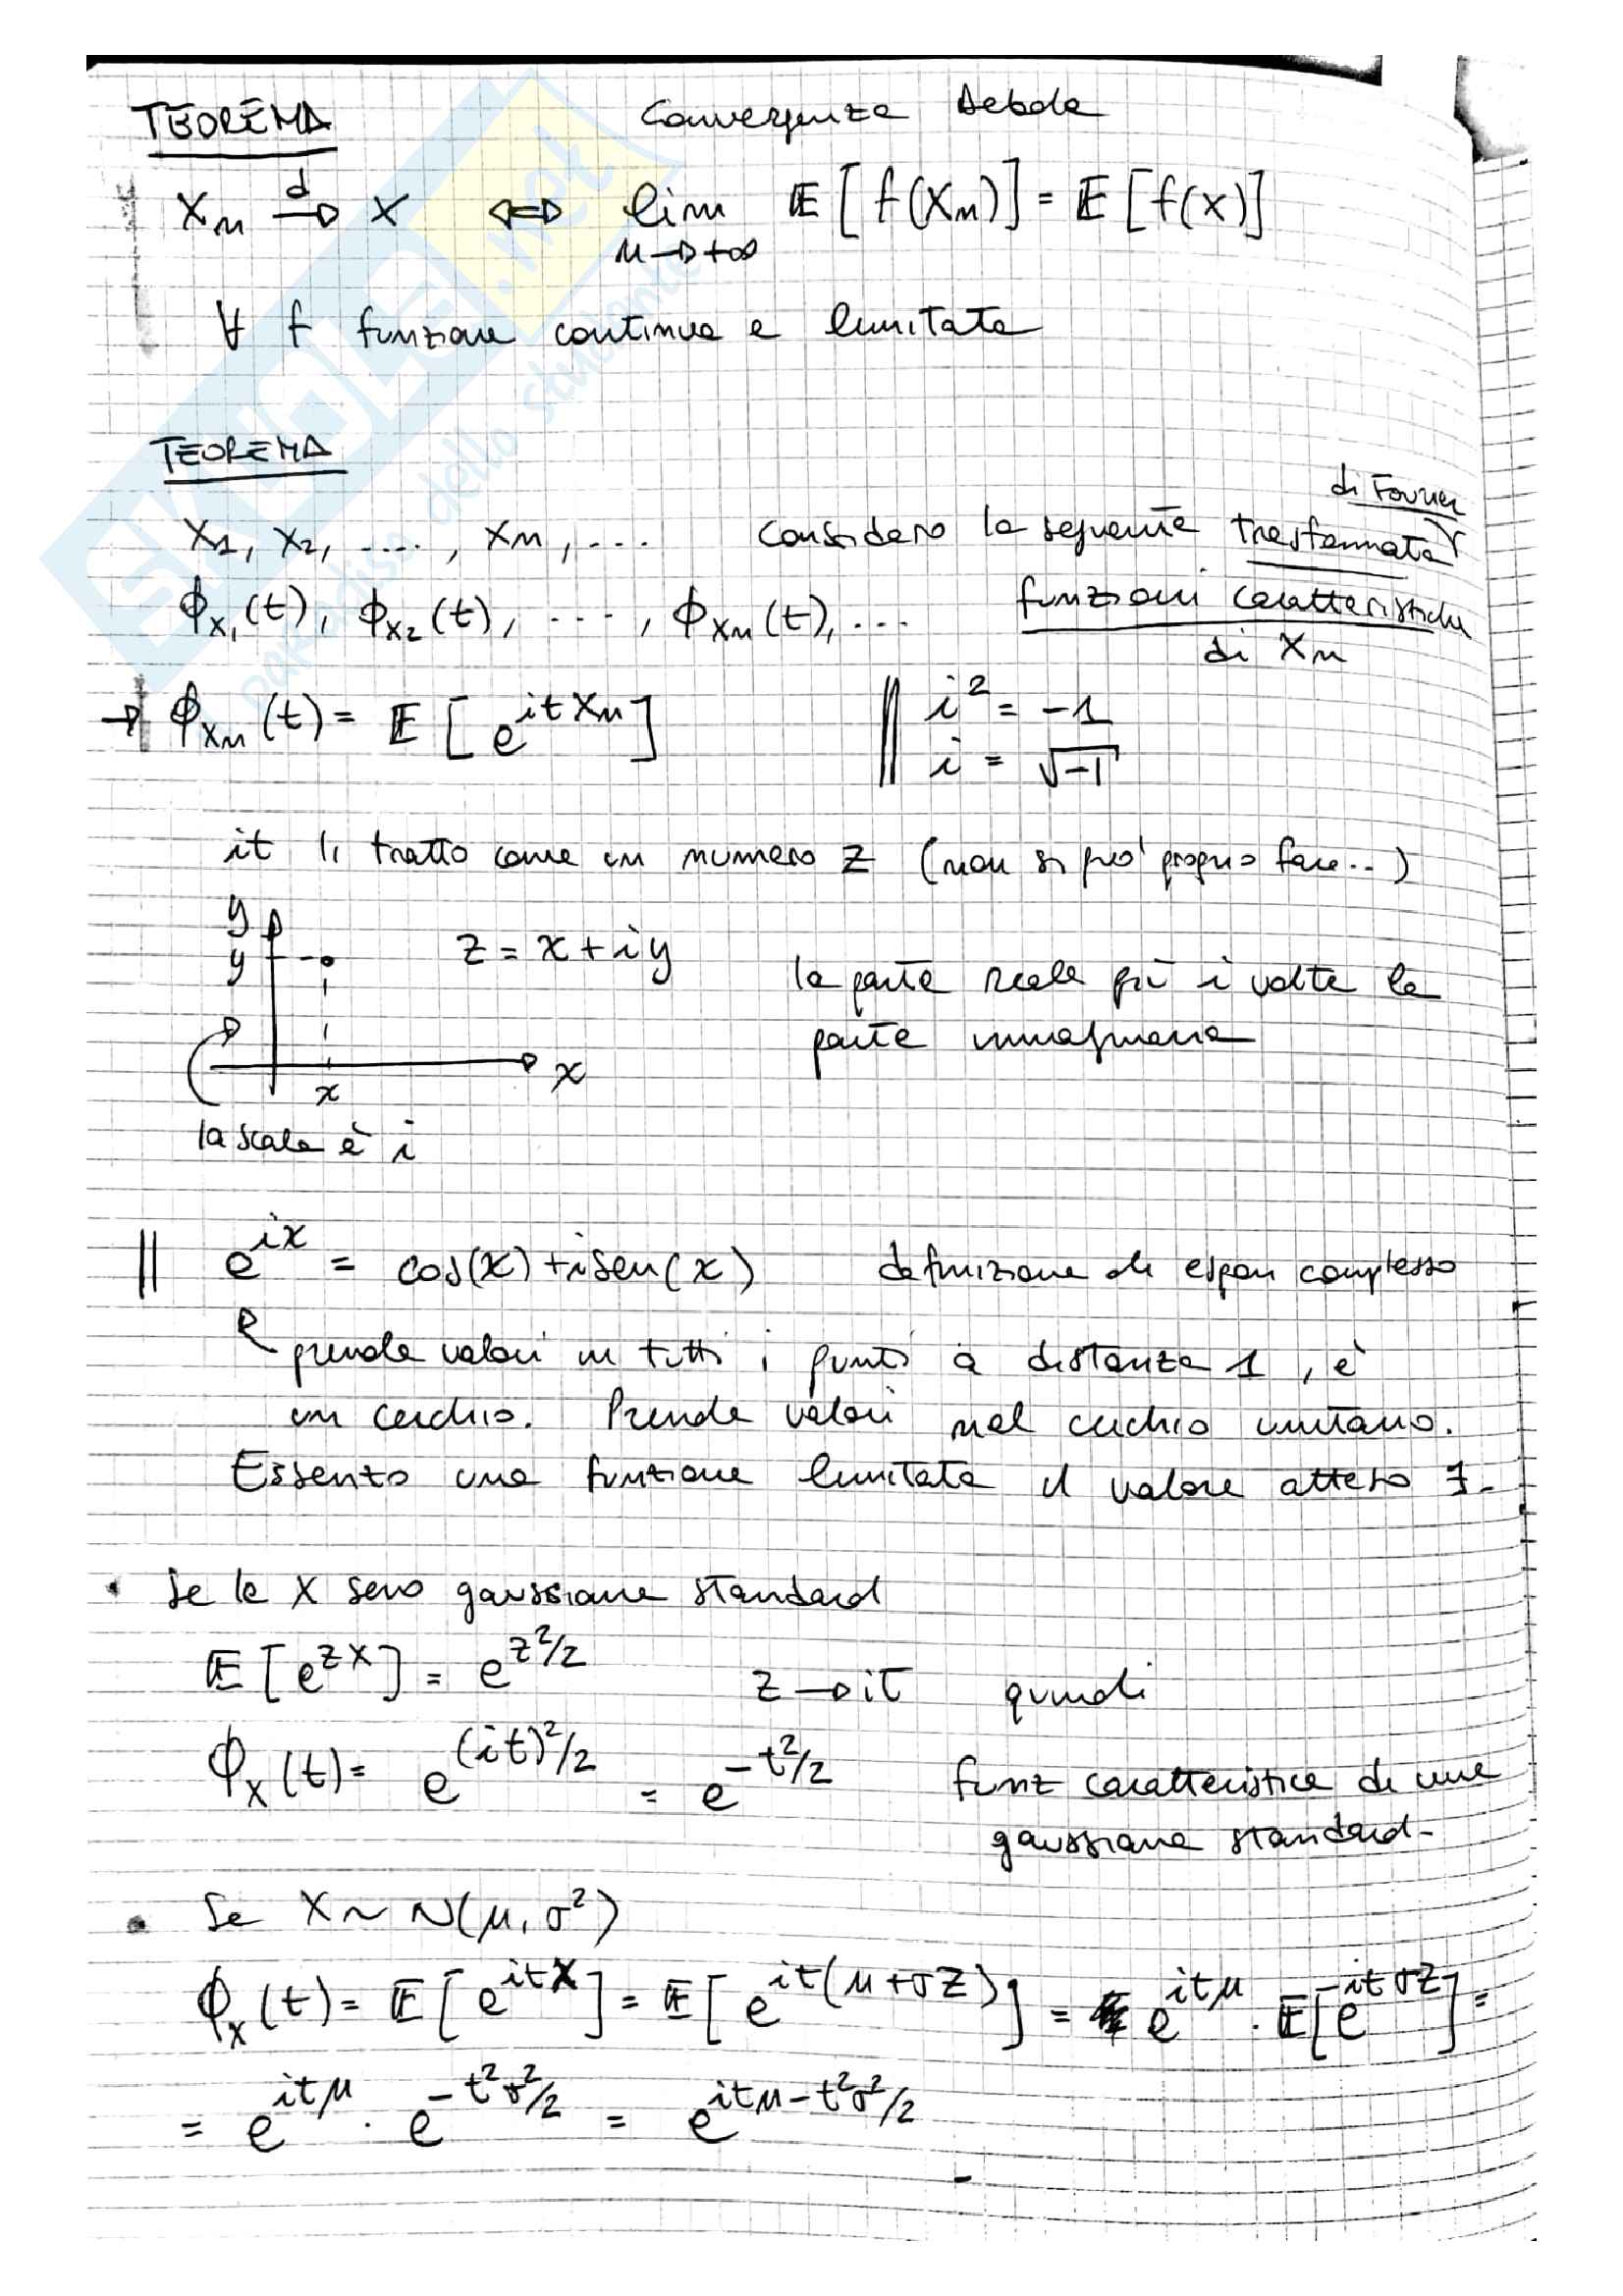 TEOREMA Convergenza Debole
Xn →d X ⇔ lim n→+∞ E[f(Xn)] = E[f(x)]
∀ f funzione continua e limitata
TEOREMA
di Fourier
X1, X2, ...., Xn, ... considero la seguente trasformata
ϕX1(t), ϕX2(t), ..., ϕXn(t), ... funzioni caratteristiche
di Xn
→ ϕXn(t) = E[e^{itXn}] || i² = -1
i = √-1
it li tratto come un numero z (non si può proprio fare..)
y
y z = x + iy la parte reale più i volte la
parte immaginaria
x
x
la scala è i
|| e^{ix} = cos(x) + i sen(x) definizione di espon complesso
prende valori in tutti i punti a distanza 1, è
un cerchio. Prende valori nel cerchio unitario.
Essento una funzione limitata il valore atteso ∃.
• Se le X sono gaussiane standard
E[e^{zX}] = e^{z²/2} z → it quindi
ϕX(t) = e^{(it)²/2} = e^{-t²/2} funz caratteristica di una
gaussiana standard.
• Se X ~ N(μ, σ²)
ϕX(t) = E[e^{itX}] = E[e^{it(μ+σZ)}] = e^{itμ} · E[e^{itσZ}] =
= e^{itμ} · e^{-t²σ²/2} = e^{itμ - t²σ²/2}
SKUOLA.net
paradiso dello studente